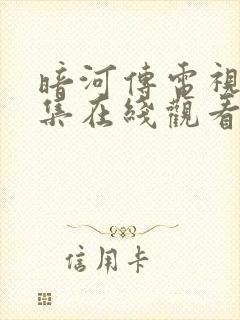 暗河傳電視
集在綫觀看
信用卡